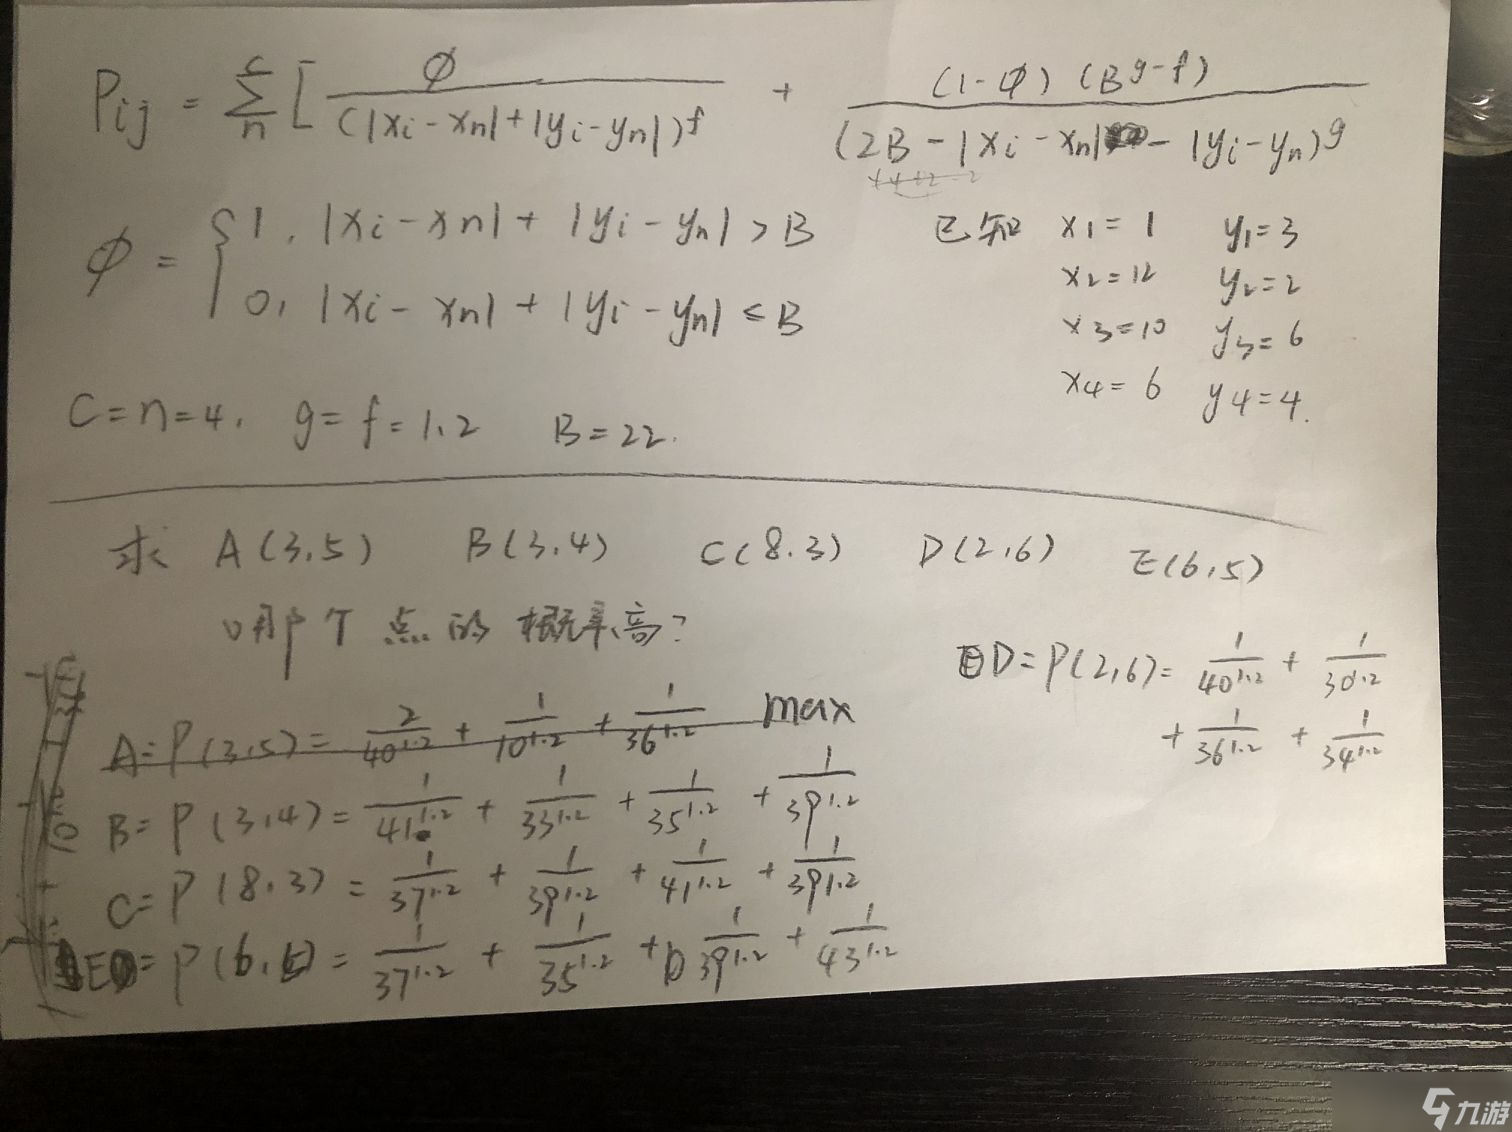 Pij = Σ^c_n [ ∅ / (|xi - xn| + |yi - yn|)^f + (1-∅)(B^g-f) / (2B - |xi - xn| - |yi - yn|)^g
∅ = { 1, |xi - xn| + |yi - yn| > B
0, |xi - xn| + |yi - yn| ≤ B
已知 x1 = 1 y1 = 3
x2 = 12 y2 = 2
x3 = 10 y3 = 6
x4 = 6 y4 = 4.
C = n = 4, g = f = 1.2 B = 22.
求 A(3.5) B(3.4) C(8.3) D(2,6) E(6,5)
哪个点的概率高?
A = P(3,5) = 2/40^1.2 + 1/10^1.2 + 1/36^1.2 max
B = P(3,4) = 1/41^1.2 + 1/33^1.2 + 1/35^1.2 + 1/39^1.2
C = P(8.3) = 1/37^1.2 + 1/39^1.2 + 1/41^1.2 + 1/39^1.2
E = P(6,5) = 1/37^1.2 + 1/35^1.2 + 1/39^1.2 + 1/43^1.2
D = P(2,6) = 1/40^1.2 + 1/30^1.2
+ 1/36^1.2 + 1/34^1.2
九游